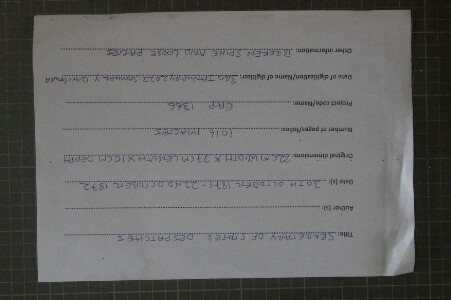 Title: SECRETARY OF STATES DESPATCHES
Author (s):
Date (s): 20TH OCTOBER, 1971 - 22ND DECEMBER, 1972
Original dimensions: 22CM WIDTH X 37CM LENGTH X 10CM DEPTH
Number of pages/folios: 1016 IMAGES
Project code/Name: EAP 1366
Date of digitization/Name of digitizer: 3RD JANUARY, 2023 SAMUEL Y.
Other information: BROKEN SPINE AND LOOSE PAGES